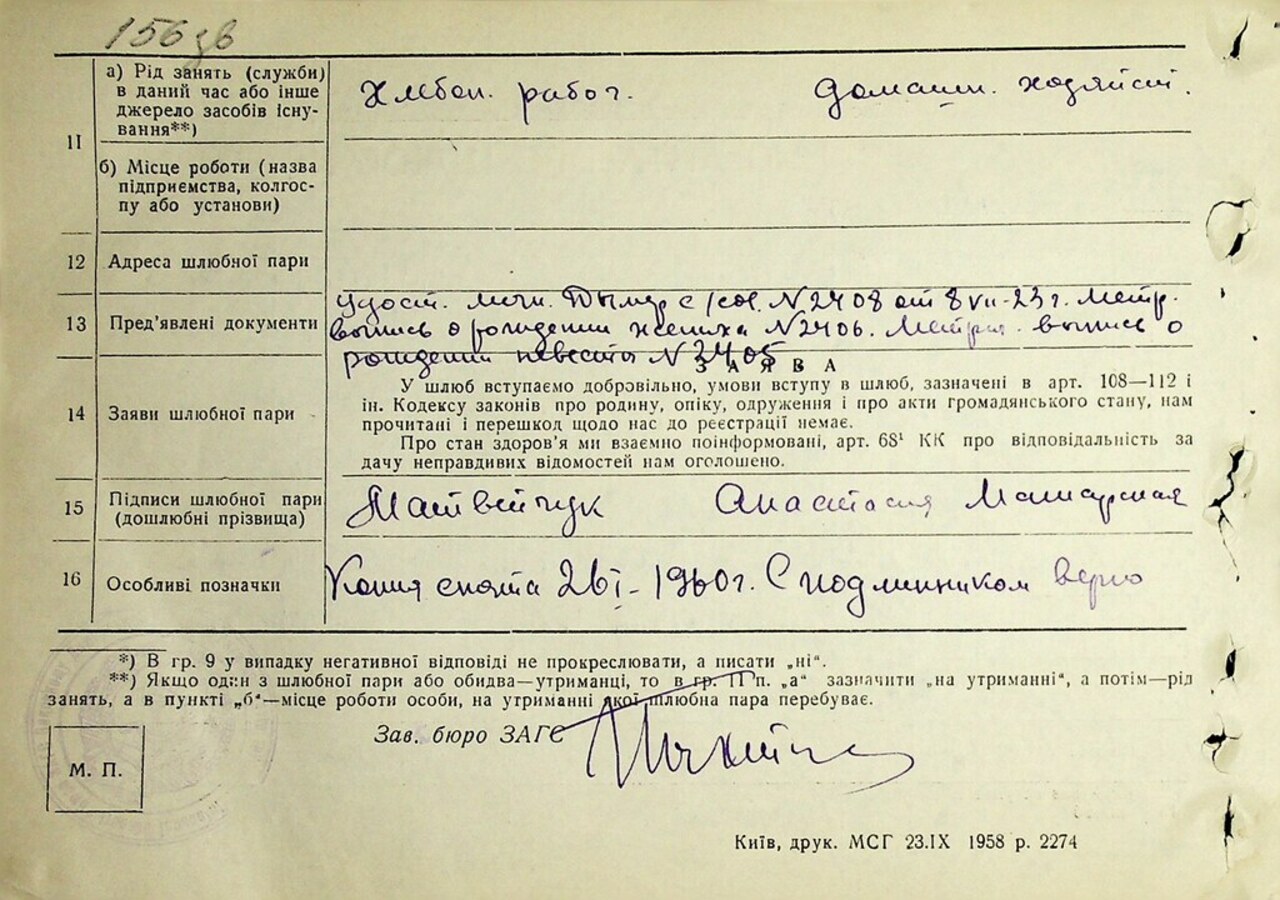 156 зв
11
а) Рід занять (служби)
в даний час або інше
джерело засобів існу-
вання**)
Хлебоп. работ. Домашн. хозяйст.
б) Місце роботи (назва
підприємства, колгос-
пу або установи)
12 Адреса шлюбної пари
13 Пред’явлені документи
Удост. личн. Дымер с/сов. N 2408 от 8 VII-23 г. Метр.
выпись о рождении жениха N 2406. Метрич. выпись о
рождении невесты N 2405
ЗАЯВА
14 Заяви шлюбної пари
У шлюб вступаємо добровільно, умови вступу в шлюб, зазначені в арт. 108—112 і
ін. Кодексу законів про родину, опіку, одруження і про акти громадянського стану, нам
прочитані і перешкод щодо нас до реєстрації немає.
Про стан здоров’я ми взаємно поінформовані, арт. 68¹ КК про відповідальність за
дачу неправдивих відомостей нам оголошено.
15 Підписи шлюбної пари
(дошлюбні прізвища)
Матвейчук Анастасия
16 Особливі позначки
Копия снята 26 I - 1960 г. С подлинником верно
*) В гр. 9 у випадку негативної відповіді не прокреслювати, а писати „ні“.
**) Якщо один з шлюбної пари або обидва—утриманці, то в гр. 11 п. „а“ зазначити „на утриманні“, а потім—рід
занять, а в пункті „б“—місце роботи особи, на утриманні якої шлюбна пара перебуває.
Зав. бюро ЗАГС
М. П.
Київ, друк. МСГ 23.IX 1958 р. 2274